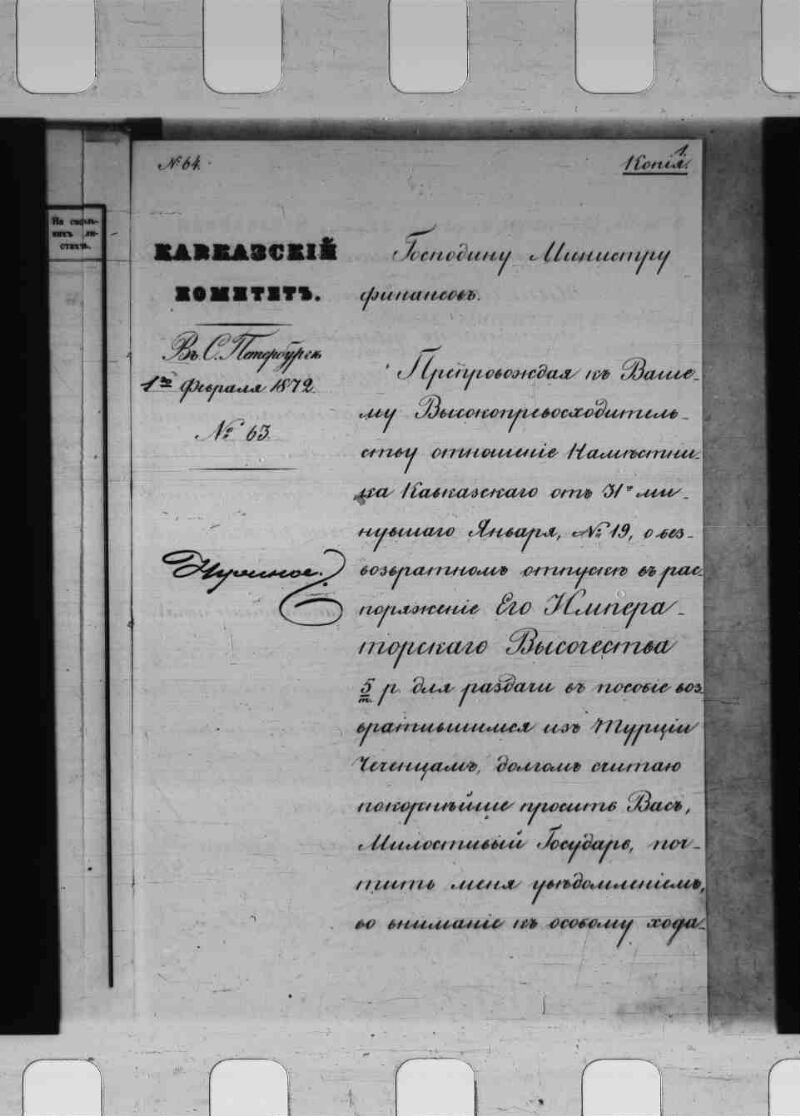 № 64.
1.
Копія.
На сколь-
кихъ ли-
стахъ.
КАВКАЗСКІЙ
КОМИТЕТЪ.
Въ С. Петербургѣ
1го Февраля 1872.
№ 63.
Нужное.
Господину Министру
финансовъ.
Препровождая къ Ваше-
му Высокопревосходитель-
ству отношеніе Намѣстни-
ка Кавказскаго отъ 31го ми-
нувшаго Января, № 19, о без-
возвратномъ отпускѣ въ рас-
поряженіе Его Импера-
торскаго Высочества
5 т. р. для раздачи въ пособіе воз
вратившимся изъ Турціи
Чеченцамъ, долгомъ считаю
покорнѣйше просить Васъ,
Милостивый Государь, поч-
тить меня увѣдомленіемъ,
во вниманіе къ особому хода-